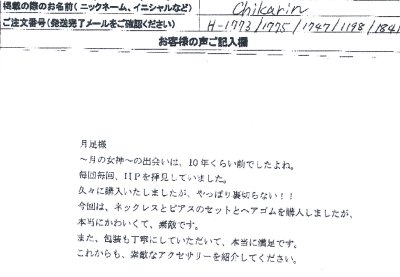 掲載の際のお名前(ニックネーム、イニシャルなど) Chikarin
ご注文番号(発送完了メールをご確認ください) H-1773/1775/1747/1198/1841
お客様の声ご記入欄
月足様
～月の女神～の出会いは、10年くらい前でしたよね。
毎回毎回、HPを拝見していました。
久々に購入いたしましたが、やっぱり裏切らない！！
今回は、ネックレスとピアスのセットとヘアゴムを購入しましたが、
本当にかわいくて、素敵です。
また、包装も丁寧にしていただいて、本当に満足です。
これからも、素敵なアクセサリーを紹介してください。